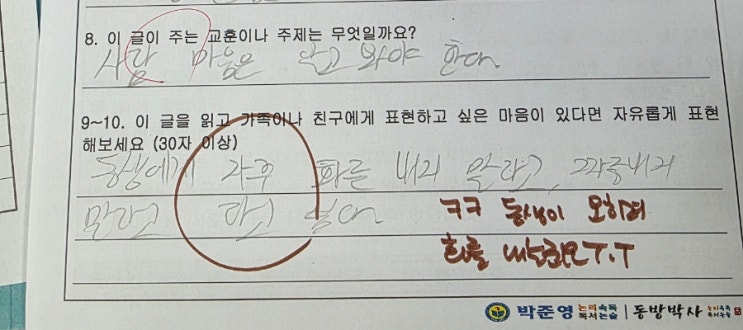 8. 이 글이 주는 교훈이나 주제는 무엇일까요?
사람 마음은 알고 봐야 한다.
9~10. 이 글을 읽고 가족이나 친구에게 표현하고 싶은 마음이 있다면 자유롭게 표현
해보세요 (30자 이상)
동생에게 자주 화를 내지 말라고, 짜증내지
말라고 하고 싶다
ㅋㅋ 동생이 오히려
화를 내는군요 T.T
박준영 논리속독 독서논술 | 동방박사 논리속독 독서논술